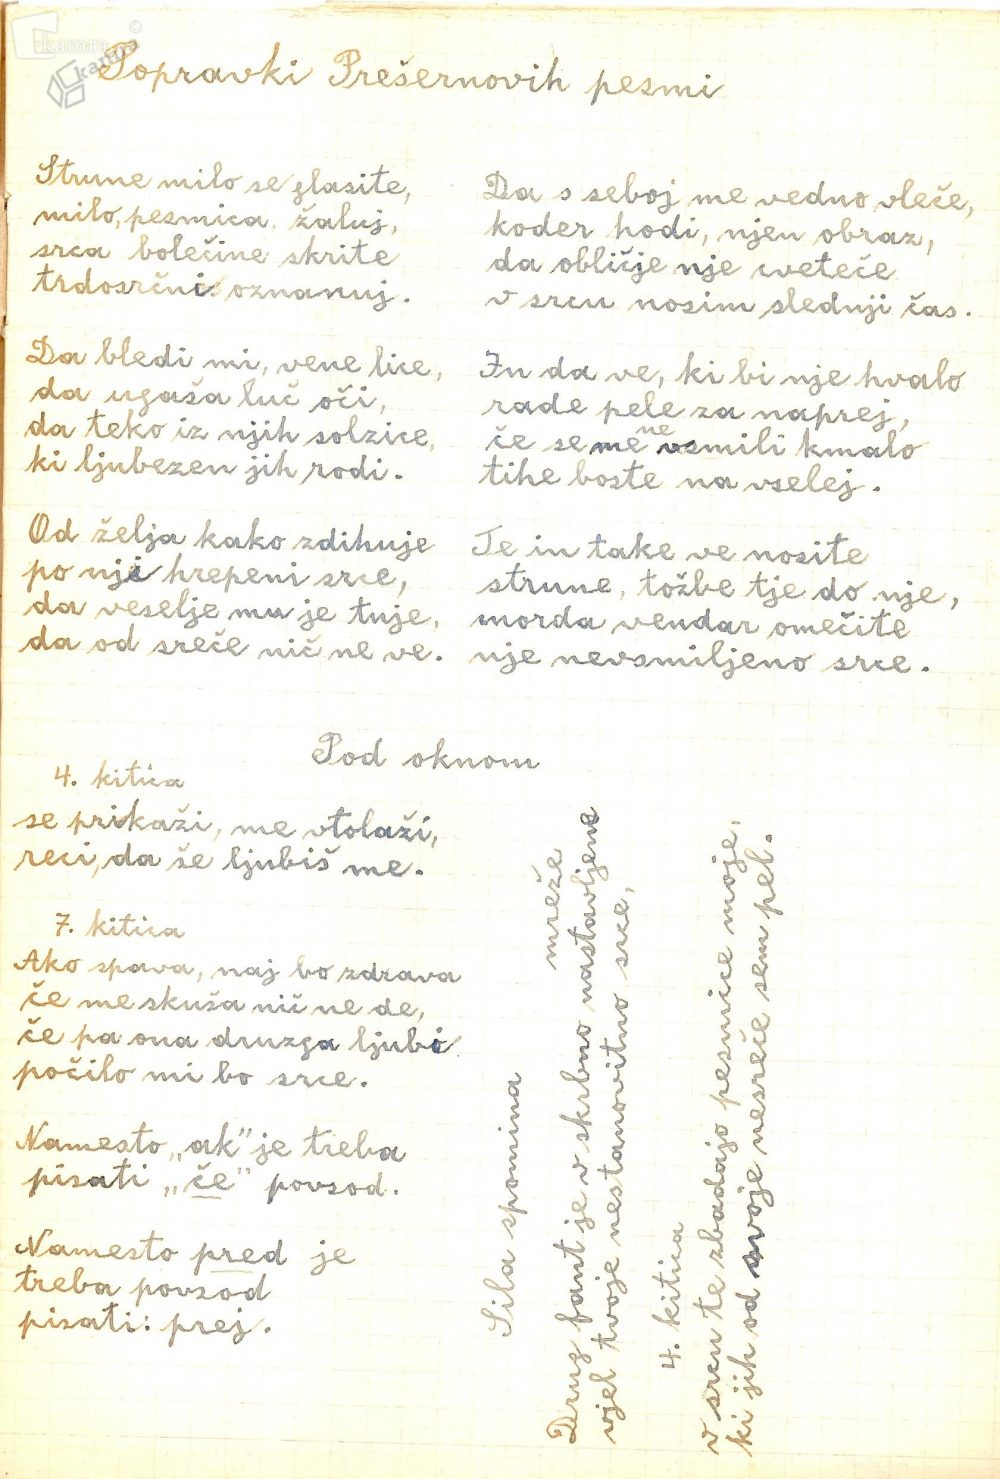 kamra
kamra ©
Popravki Prešernovih pesmi
Strune milo se glasite,
milo, pesmica, žaluj,
srca bolečine skrite
trdosrčni oznanuj.
Da bledi mi, vene lice,
da ugaša luč oči,
da teko iz njih solzice,
ki ljubezen jih rodi.
Od želja kako zdihuje
po nji hrepeni srce,
da veselje mu je tuje,
da od sreče nič ne ve.
Da s seboj me vedno vleče,
koder hodi, njen obraz,
da obličje nje cveteče
v srcu nosim slednji čas.
In da ve, ki bi nje hvalo
rade pele za naprej,
če se me ne vsmili kmalo
tihe boste na vselej.
Te in take ve nosite
strune, tožbe tje do nje,
morda vendar omečite
nje nevsmiljeno srce.
Pod oknom
4. kitica
se prikaži, me vtolaži,
reci, da še ljubiš me.
7. kitica
Ako spava, naj bo zdrava
če me skuša nič ne de,
če pa ona druzga ljubi
počilo mi bo srce.
Namesto „ak" je treba
pisati „če" povsod.
Namesto pred je
treba povsod
pisati: prej.
Sila spomina
mreže
Drug fant je v skrbno nastavljene
vjel tvoje nestanovitno srce,
4. kitica
v srcu te zbadajo pesmice moje,
ki jih od svoje nesreče sem pel.